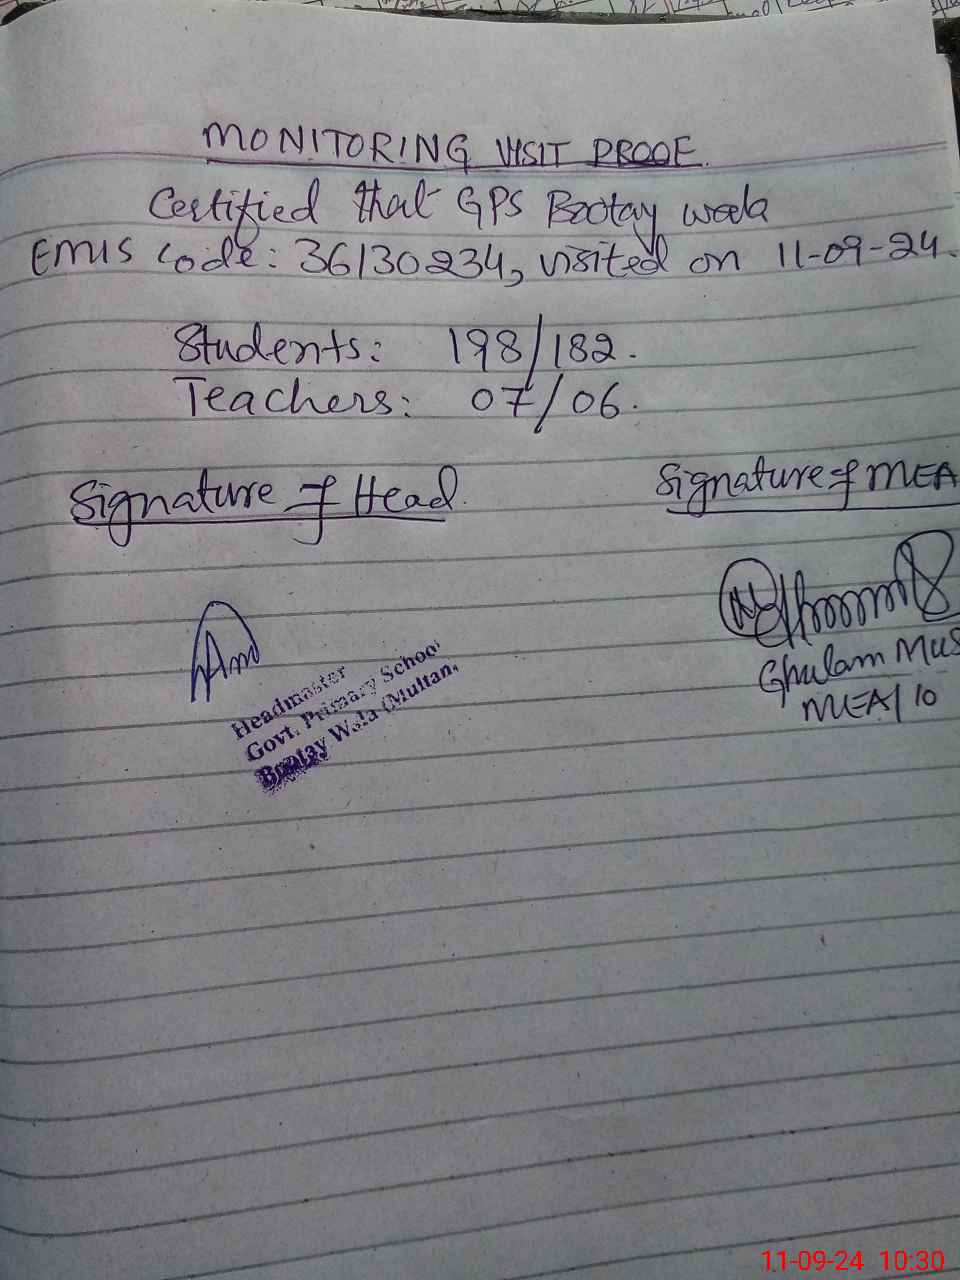 MONITORING VISIT PROOF.
Certified that GPS Bootay wala
EMIS Code: 36130234, visited on 11-09-24.
Students: 198/182.
Teachers: 07/06.
Signature of Head.
Signature of MEA
Ghulam Mus
MEA/10
Headmaster
Govt. Primary School
Bootay Wala (Multan,
11-09-24 10:30